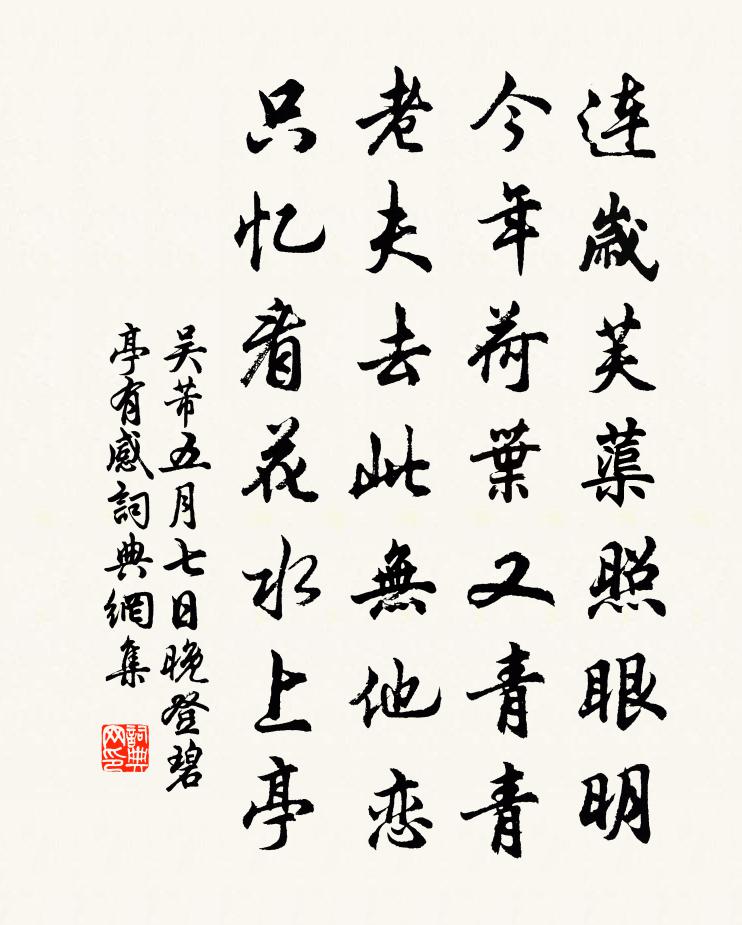 连歳芙蕖照眼明
今年荷葉又青青
老夫去此無他恋
只忆看花水上亭
吴芾五月七日晚登碧
亭有感詞典網集
詞典
网印